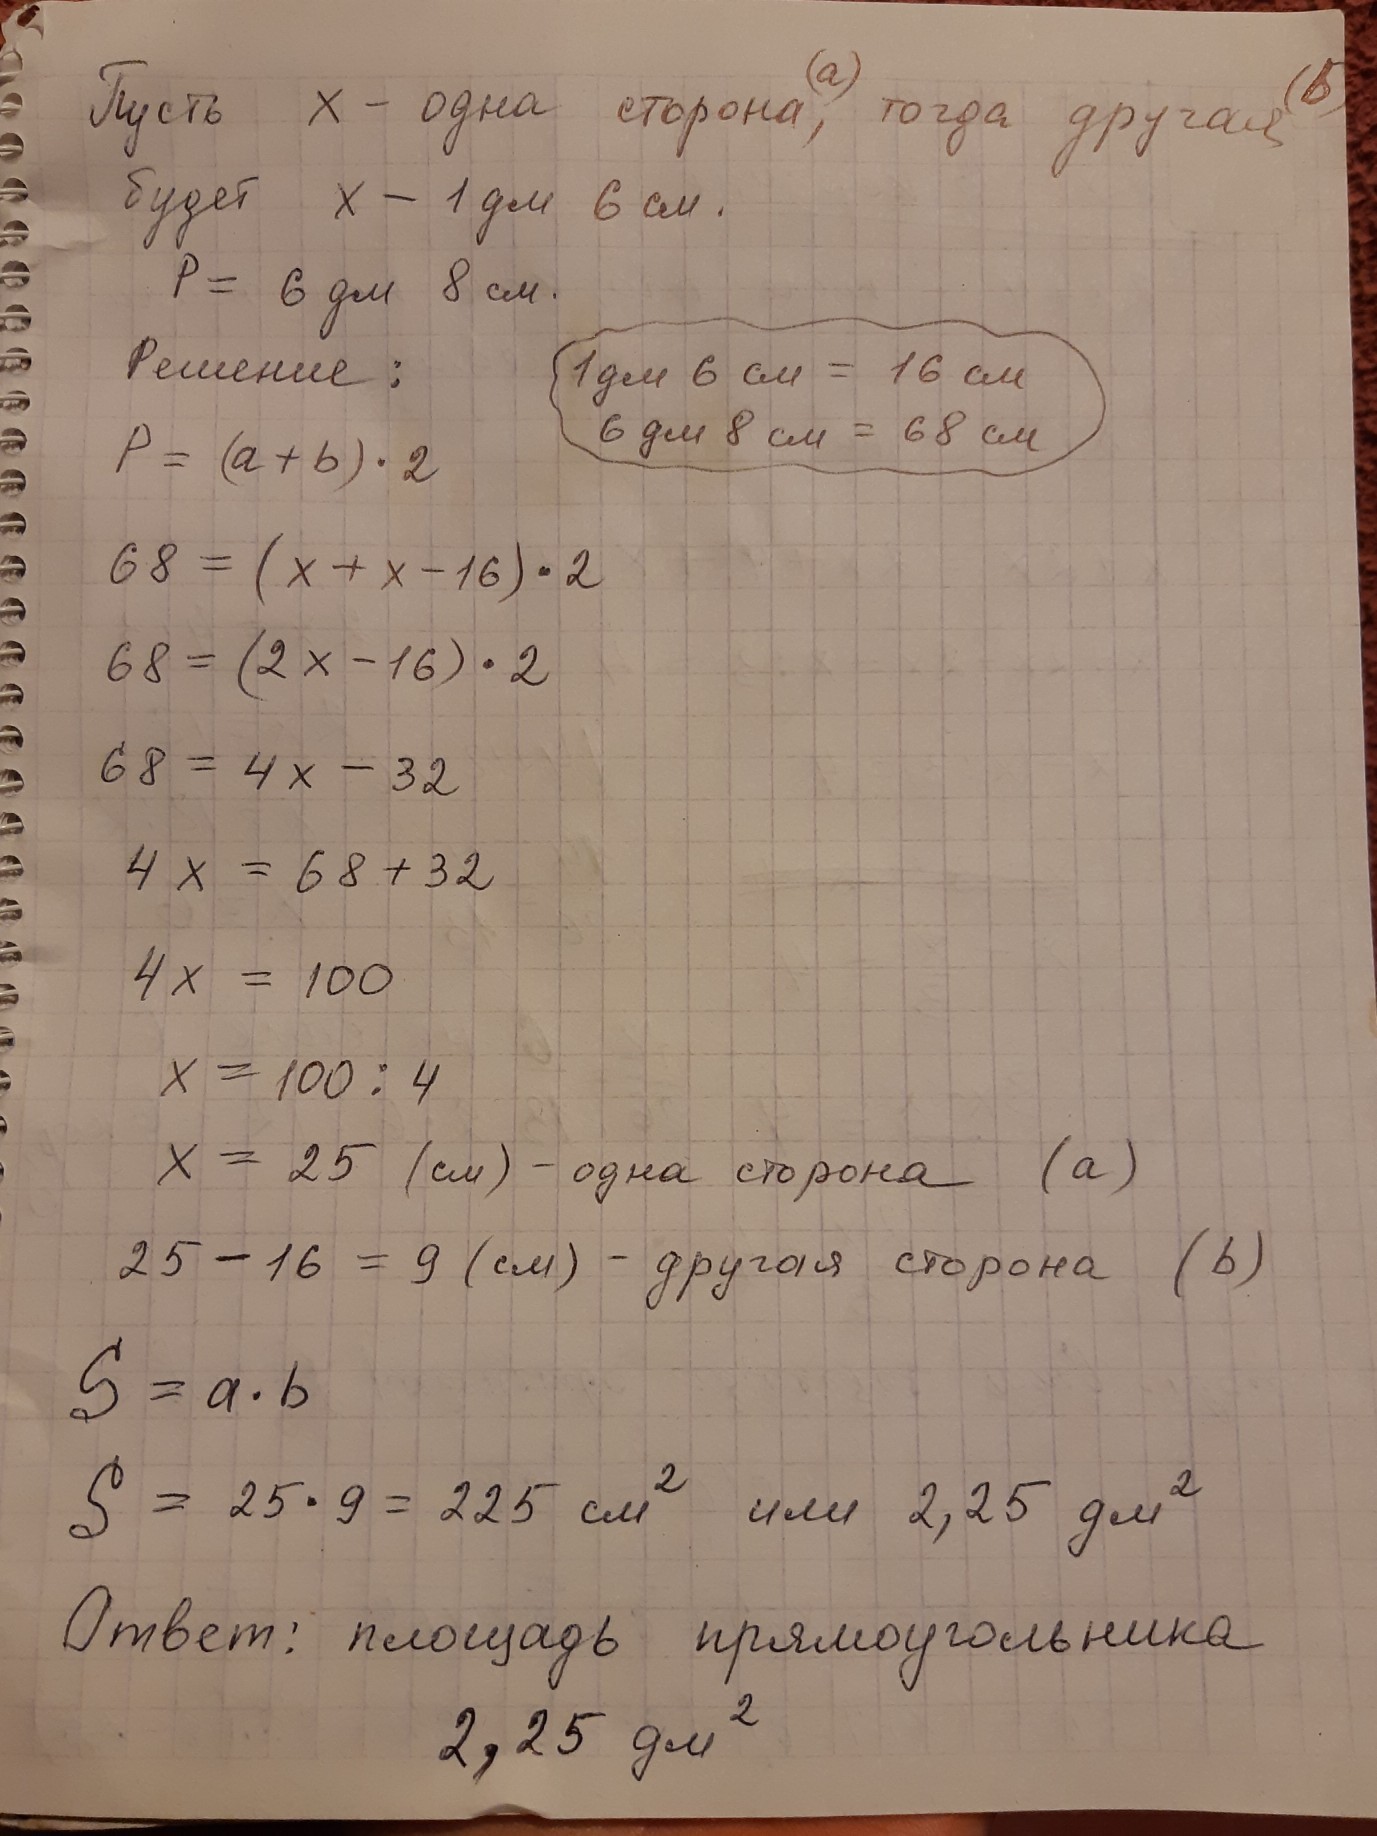 Пусть x - одна сторона (a), тогда другая (b)
будет x - 1 дм 6 см.
P = 6 дм 8 см.
Решение:
1 дм 6 см = 16 см
6 дм 8 см = 68 см
P = (a + b) · 2
68 = (x + x - 16) · 2
68 = (2x - 16) · 2
68 = 4x - 32
4x = 68 + 32
4x = 100
x = 100 : 4
x = 25 (см) - одна сторона (a)
25 - 16 = 9 (см) - другая сторона (b)
S = a · b
S = 25 · 9 = 225 см² или 2,25 дм²
Ответ: площадь прямоугольника
2,25 дм²